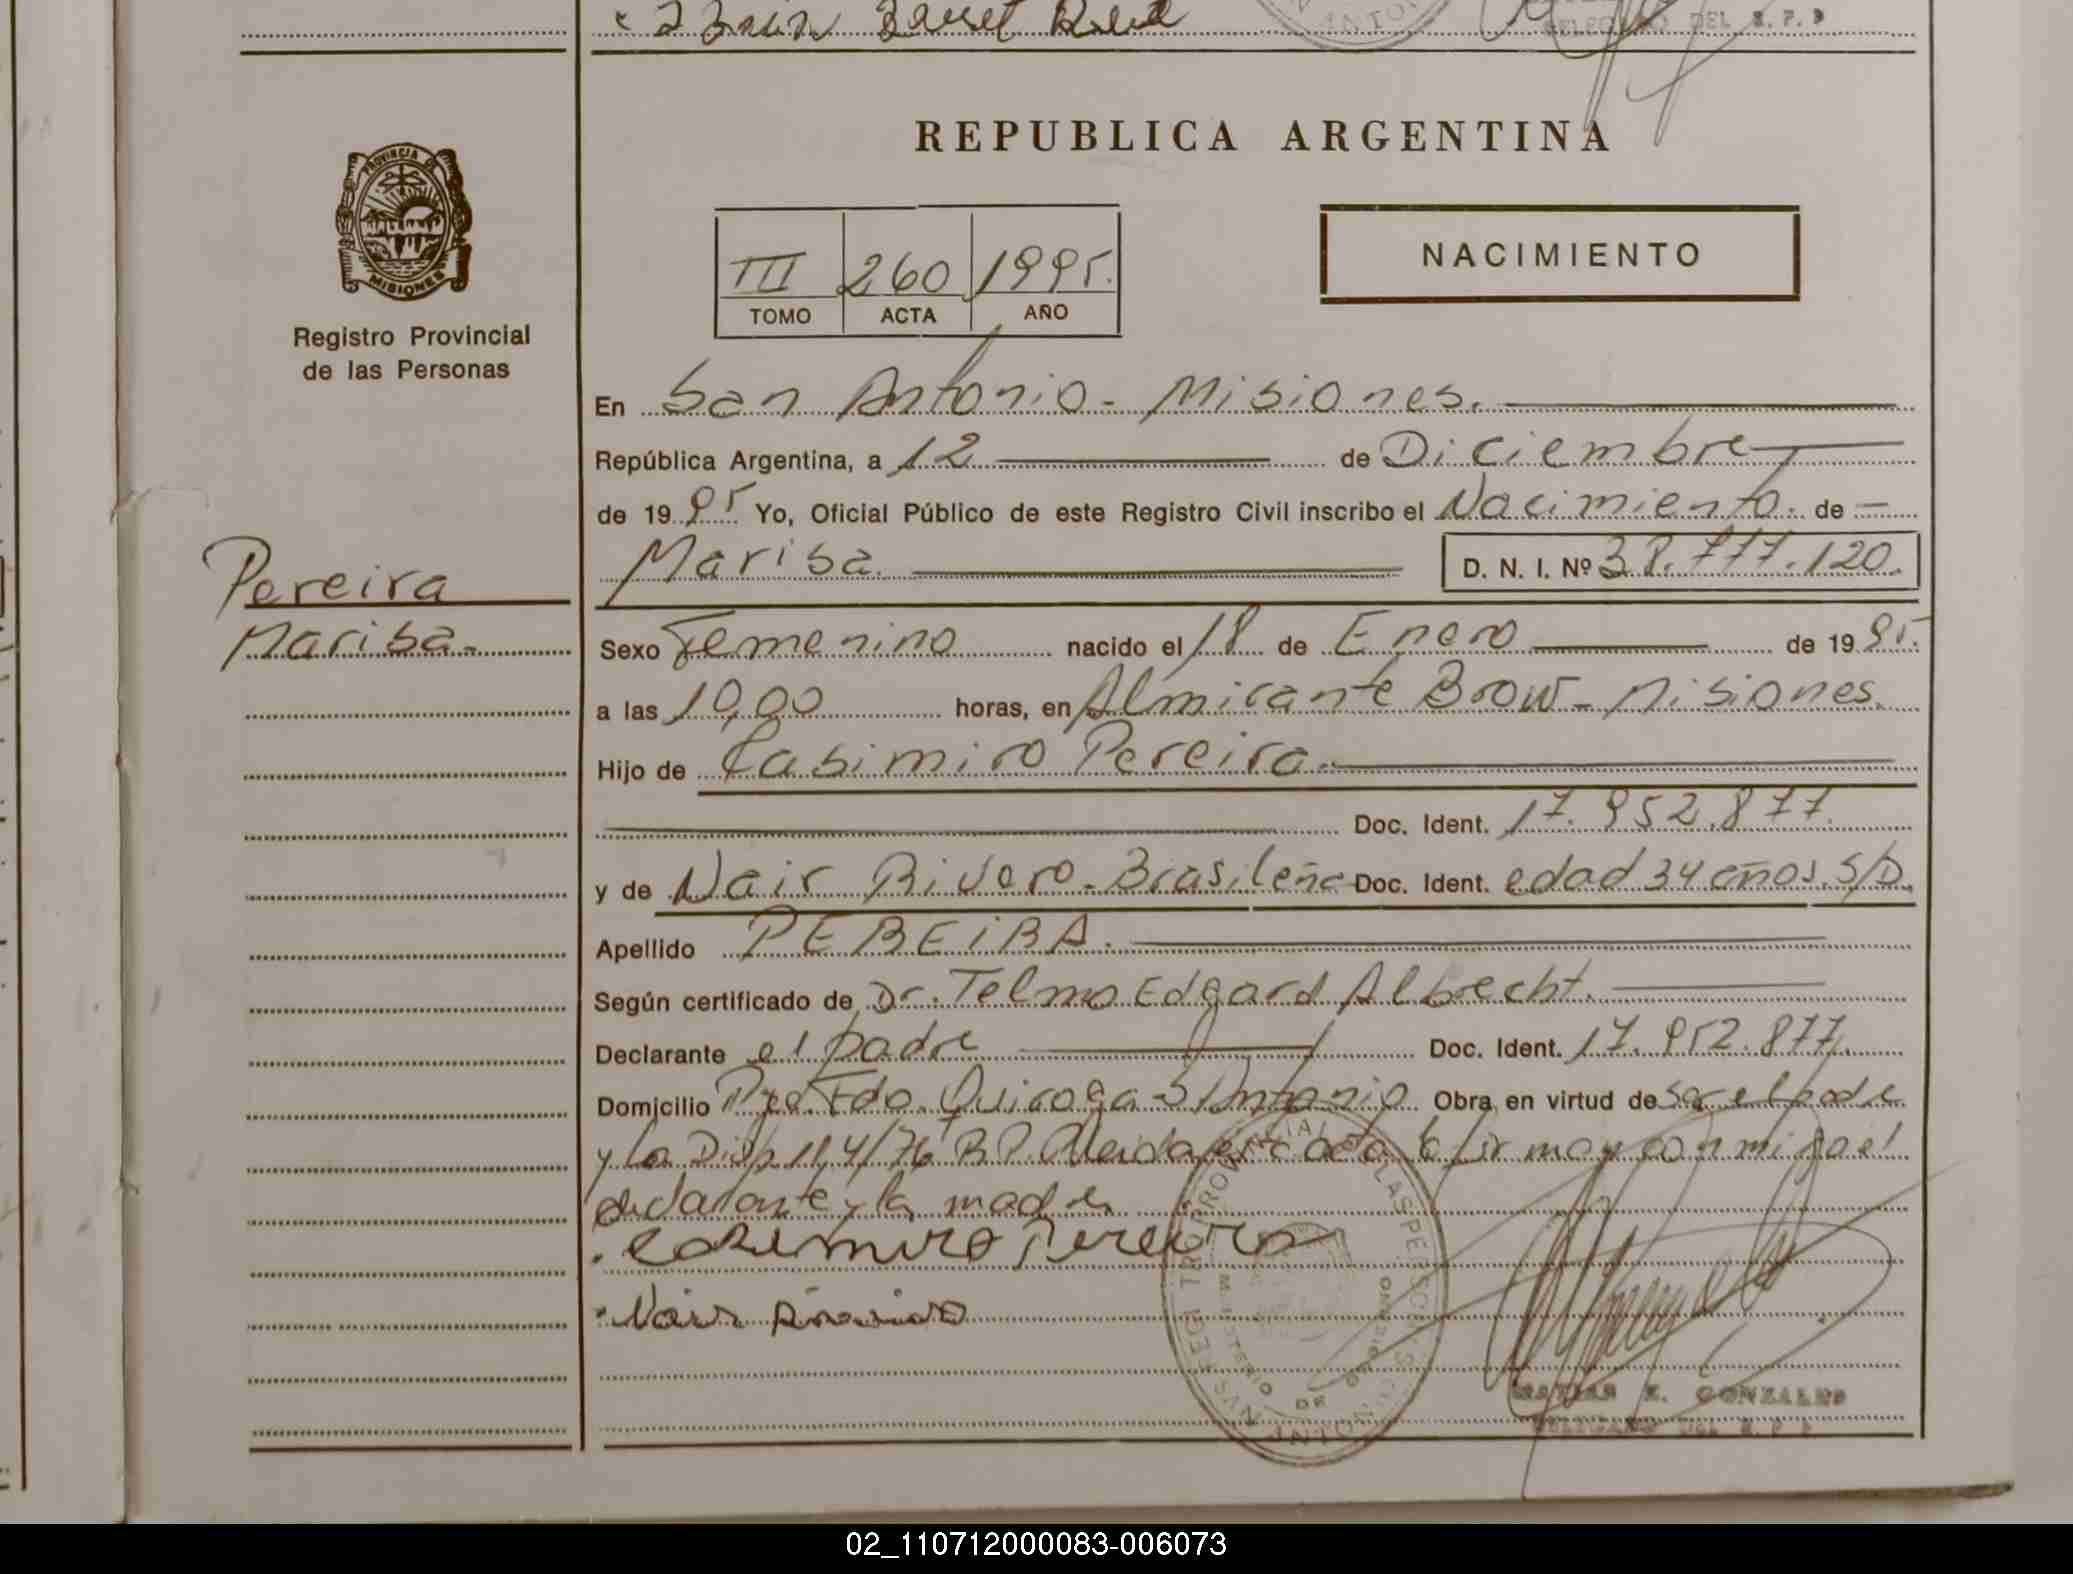 REPUBLICA ARGENTINA
PROVINCIA DE
MISIONES
Registro Provincial
de las Personas
NACIMIENTO
III 260 1995.
TOMO ACTA AÑO
En San Antonio - Misiones.
República Argentina, a 12 de Diciembre
de 1995 Yo, Oficial Público de este Registro Civil inscribo el Nacimiento. de
Marisa. D. N. I. Nº 38.777.120.
Pereira
Marisa.
Sexo Femenino nacido el 18 de Enero de 1995.
a las 10,00 horas, en Almirante Brow - Misiones.
Hijo de Casimiro Pereira.
Doc. Ident. 17.952.877.
y de Nair Rivero - Brasileña Doc. Ident. edad 34 años. S/D.
Apellido PEREIRA.
Según certificado de Dr. Telmo Edgard Albrecht.
Declarante el padre Doc. Ident. 17.952.877.
Domicilio Pje. Fdo. Quiroga - S/Antonio Obra en virtud de ser el padre
y la Disp 114/76 R.P. Leida el acta la firman conmigo el
declarante y la madre
Casemiro Pereira
Nair
REGISTRO PROVINCIAL DE LAS PERSONAS
MINISTERIO DE GOBIERNO
SAN ANTONIO
MATIAS E. GONZALEZ
DELEGADO DEL R. P. P
02_110712000083-006073